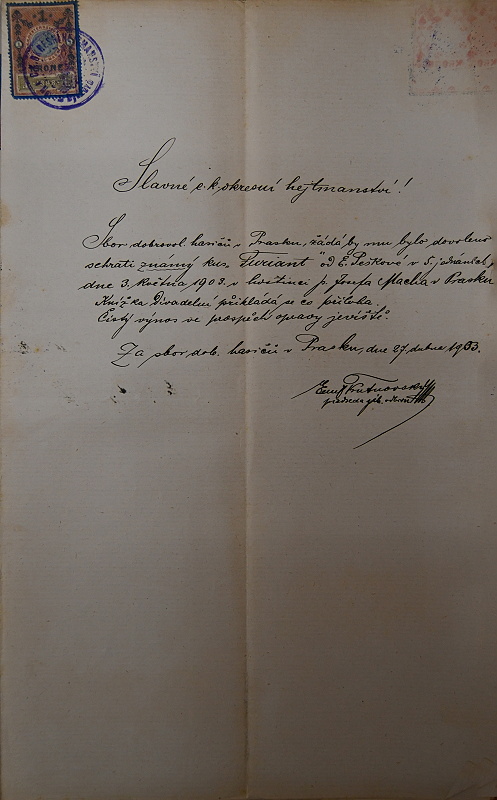 Slavné c. k. okresní hejtmanství!
Sbor dobrovol. hasičů v Prasku, žádá by mu bylo dovoleno
sehráti známý kus „Furiant" od E. Peškové v 5. jednáních,
dne 3. května 1903. v hostinci p. Josefa Macha v Prasku
Knížka divadelní přikládá se co příloha.
Čistý výnos ve prospěch opravy jeviště.
Za sbor dob. hasičů v Prasku, dne 27. dubna 1903.
předseda